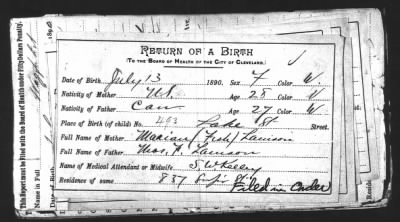 RETURN OF A BIRTH
(TO THE BOARD OF HEALTH OF THE CITY OF CLEVELAND.)
Date of Birth July 13 1890. Sex F Color W.
Nativity of Mother U.S. Age 28 Color W.
Nativity of Father Can Age 27 Color W.
Place of Birth (of child) No. 403 Lake St Street.
Full Name of Mother Marian Lamson
Full Name of Father Lamson
Name of Medical Attendant or Midwife S W Kelley
Residence of same 837
Filed in Order
This Report must be Filed with the Board of Health under Fifty Dollars Penalty.
Name in Full